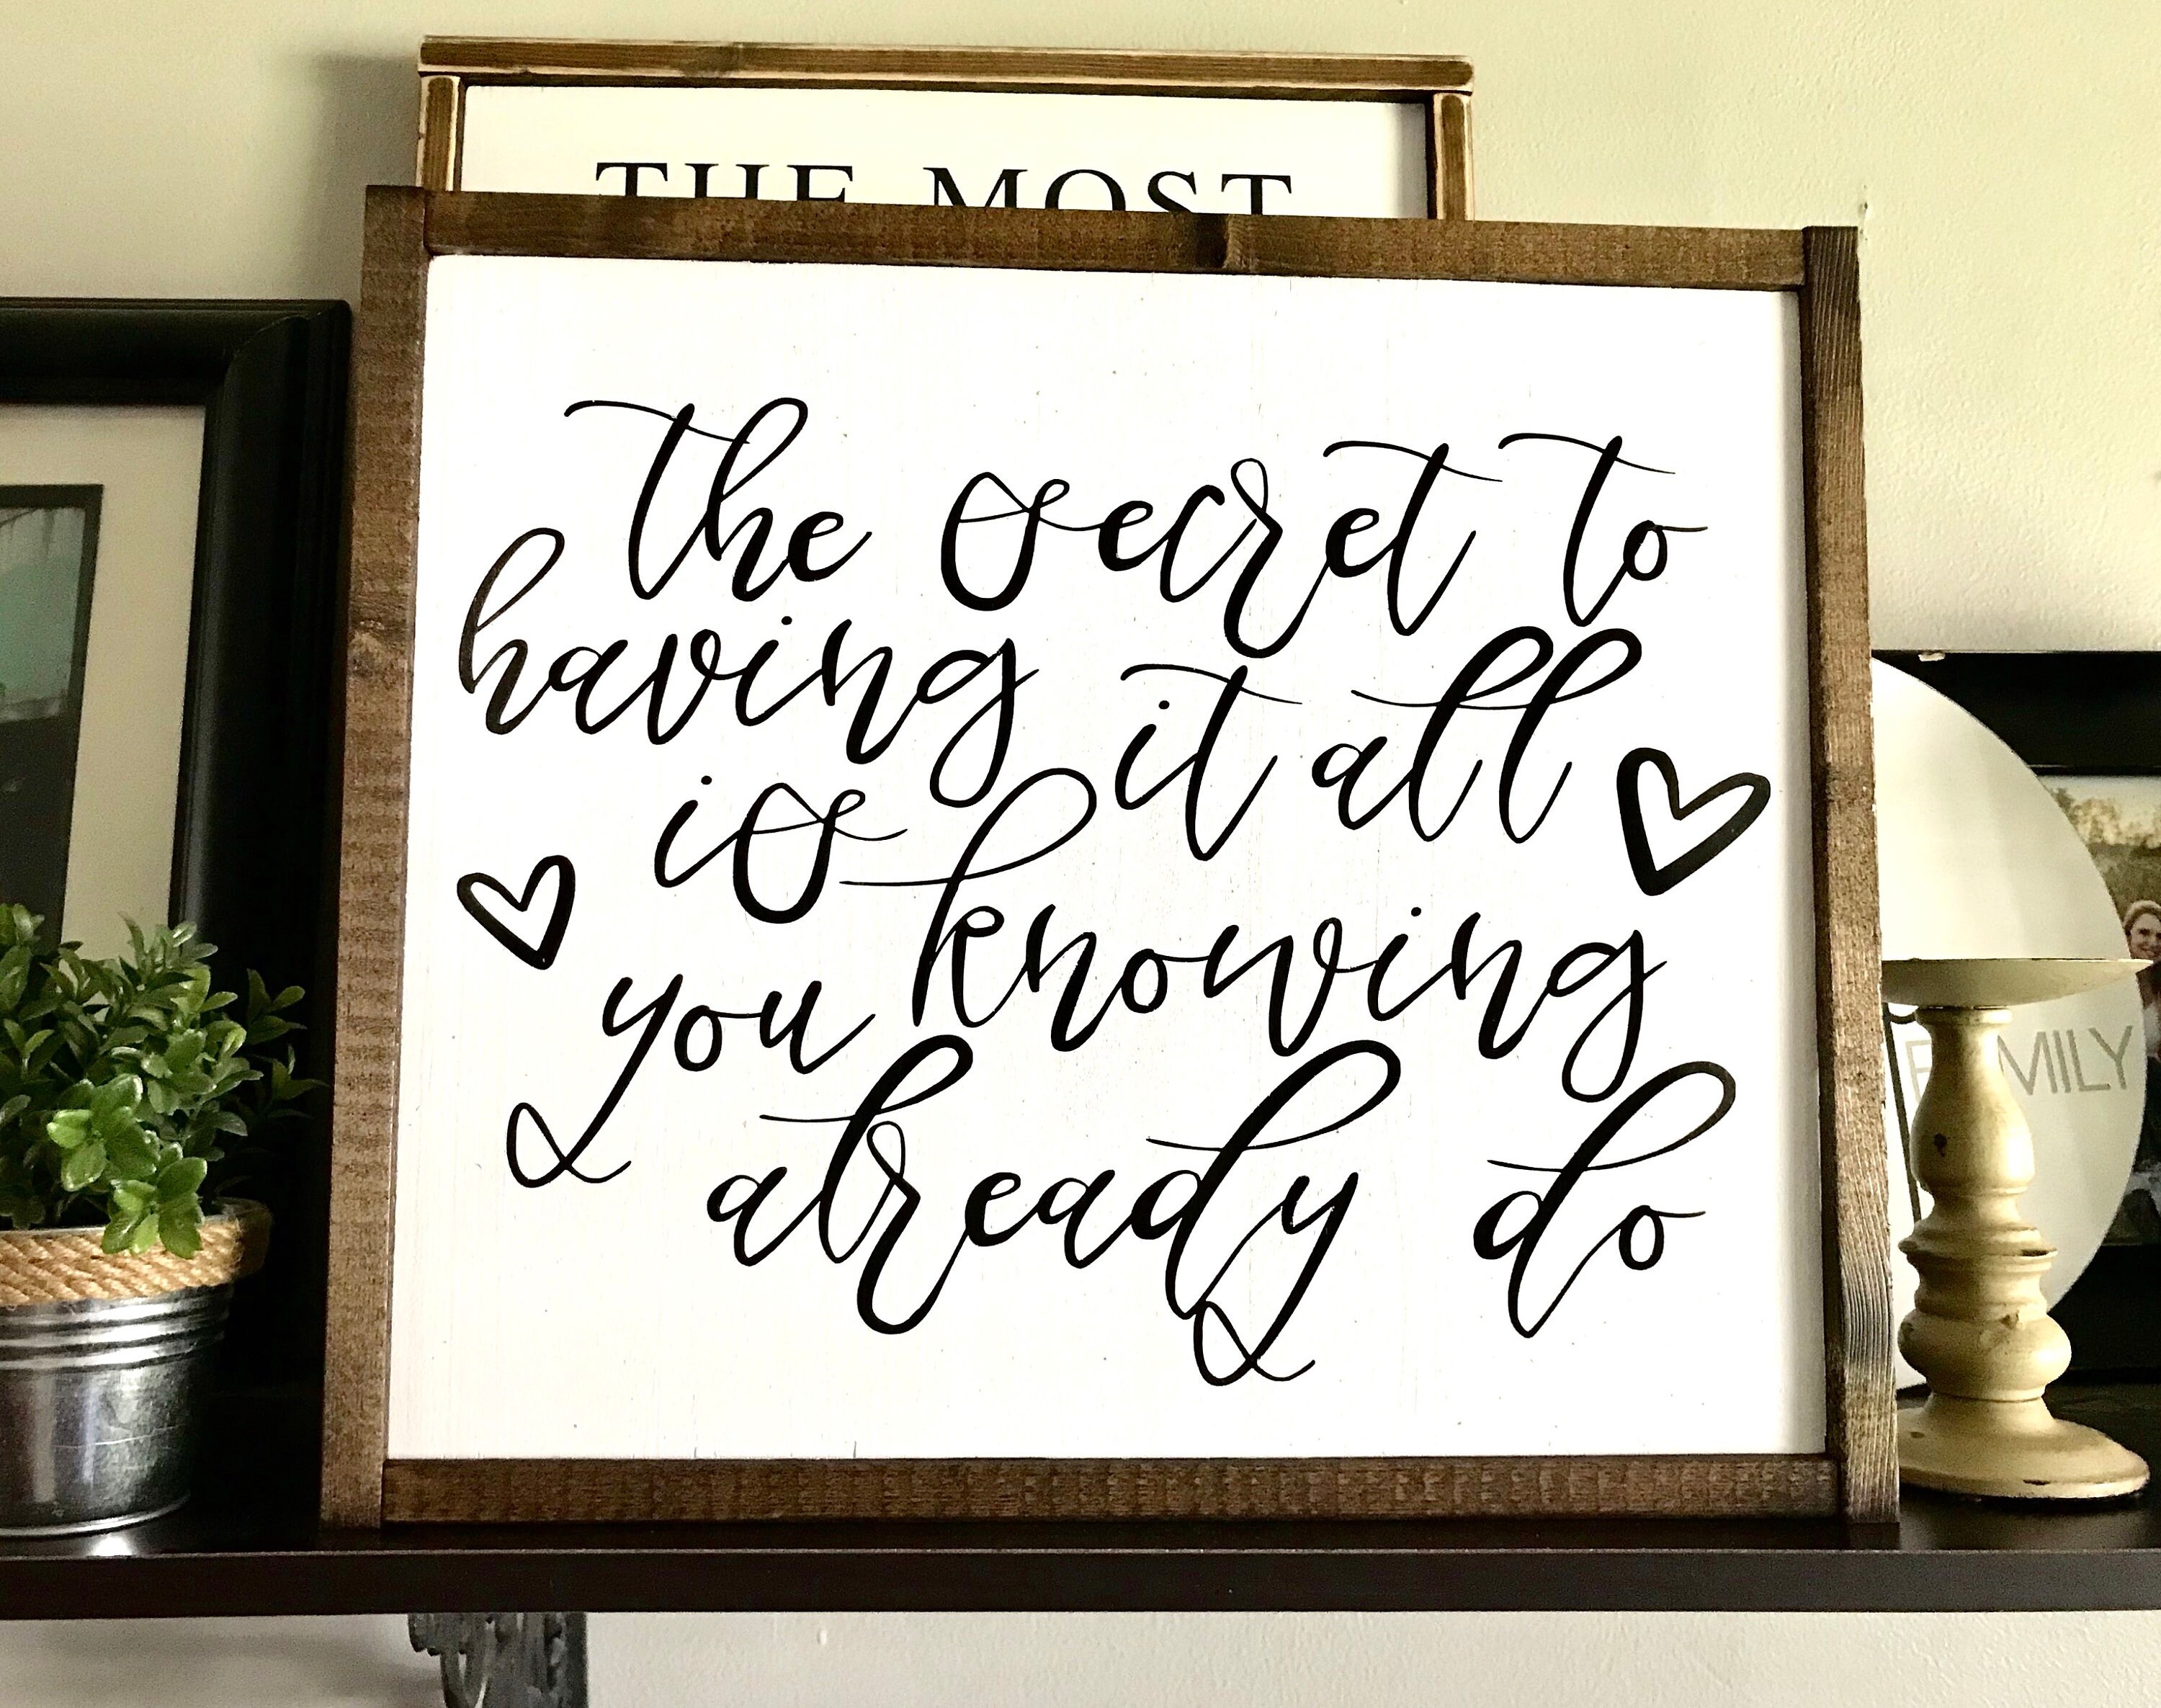 THE MOST
the secret to
having it all
is knowing
you
already do
FAMILY